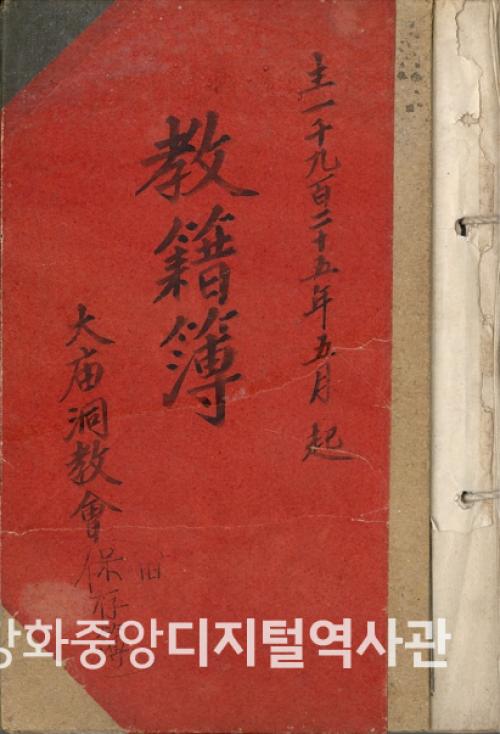 主一千九百二十五年五月 起
教籍簿
大庙洞教會
保存
강화중앙디지털역사관